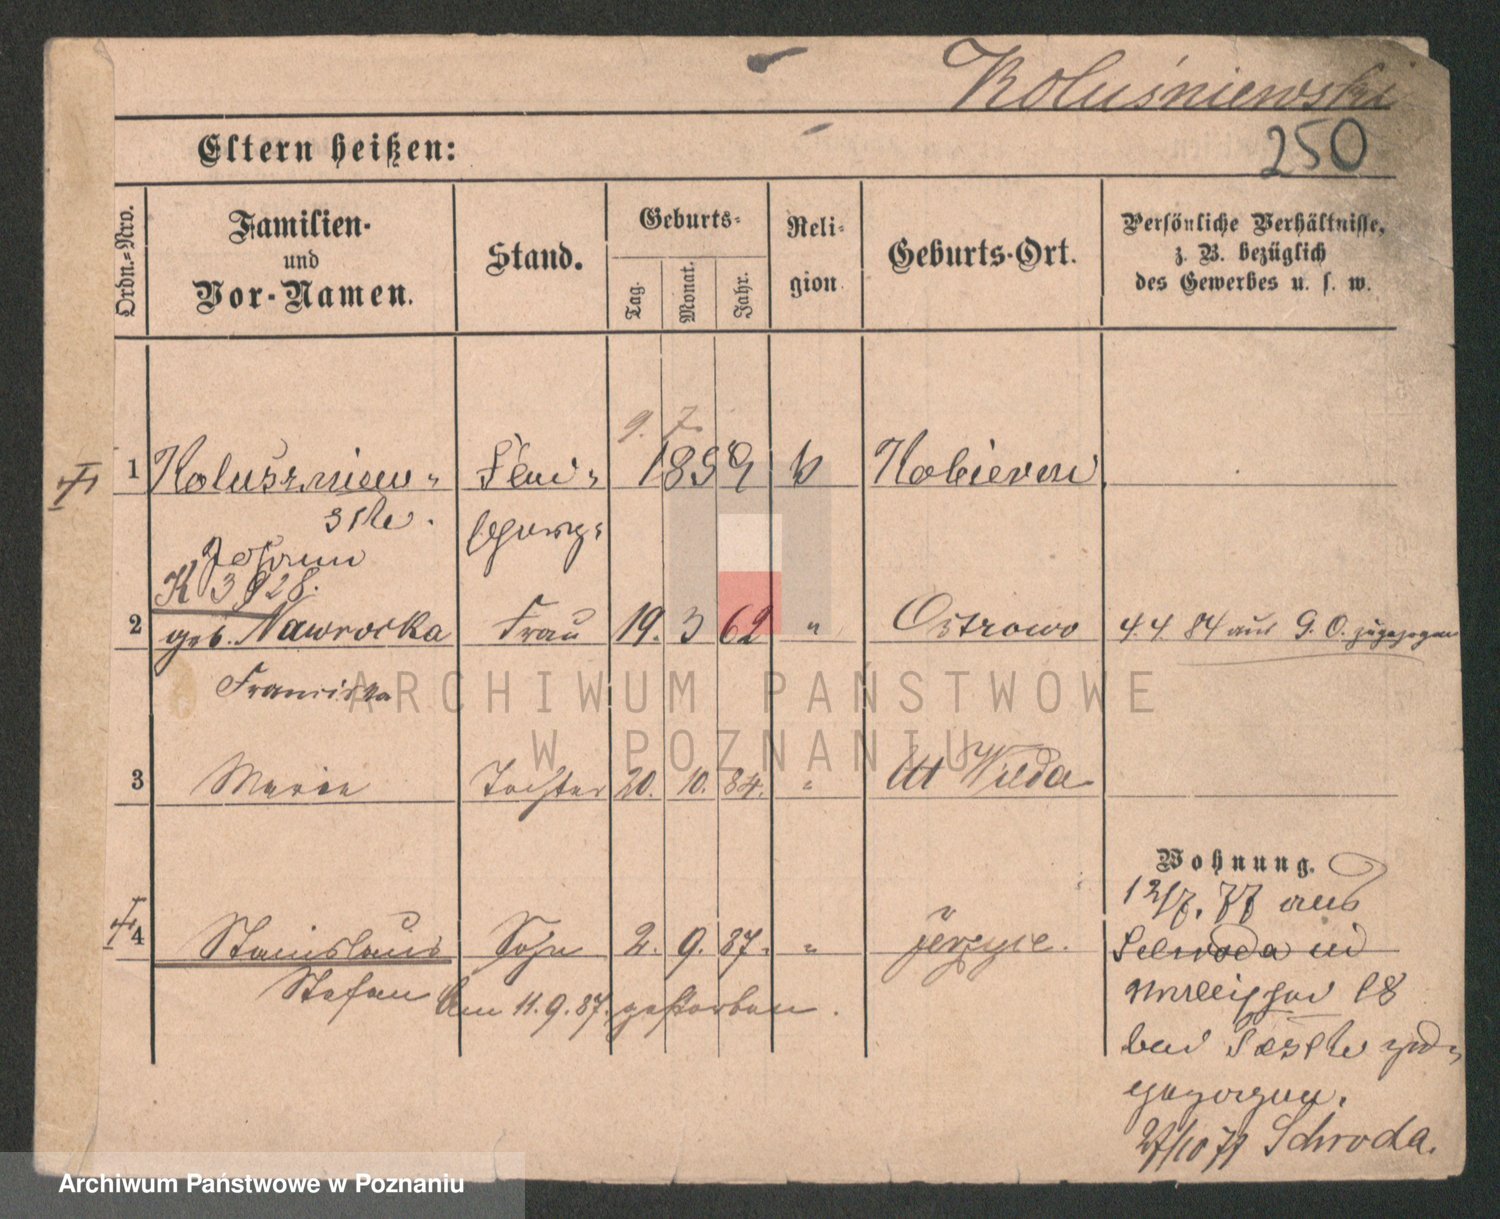 Koluśniewski
250
Eltern heißen:
Ordn.-Nro.
Familien-
und
Vor-Namen.
Stand.
Geburts-
Tag.
Monat.
Jahr.
Reli-
gion
Geburts-Ort.
Persönliche Verhältnisse,
z. B. bezüglich
des Gewerbes u. s. w.
9. 7.
1 Koluszniew-
ski.
1859 k
Johann
K 3928.
2 geb. Nawrocka Frau 19. 3 62 " Ostrowo 4.4.84 aus G. O. zugezogen
Franciska
ARCHIWUM PAŃSTWOWE
W POZNANIU
3 Marie Tochter 20. 10. 84. " Wilda
4 Stanislaus Sohn 2. 9. 87. " jerzyce.
Stefan Am 11.9.87. gestorben.
Wohnung.
12/7. 77 aus
18
bei
27/10 77 Schroda.
Archiwum Państwowe w Poznaniu